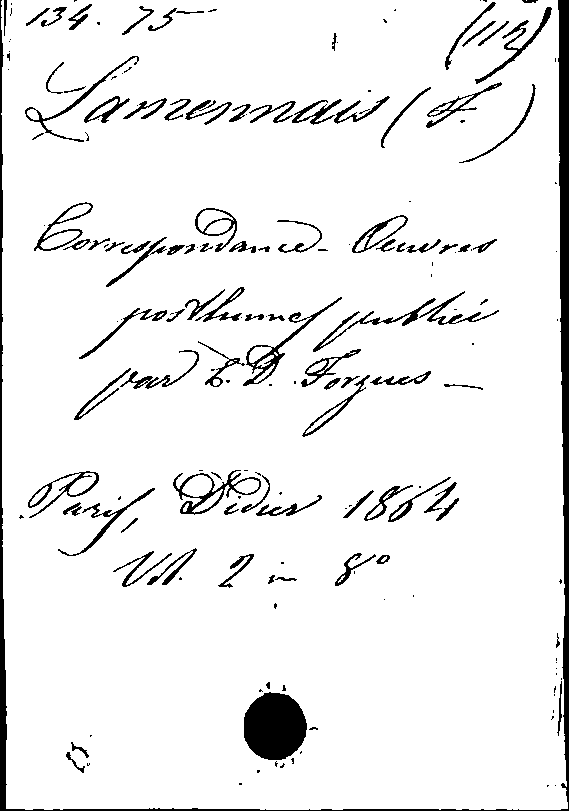 134. 75 (112)
Lamennais (F.)
Correspondance - Oeuvres
posthumes publié
par E. D. Forgues —
Paris, Didier 1864
Vol. 2 in 8°